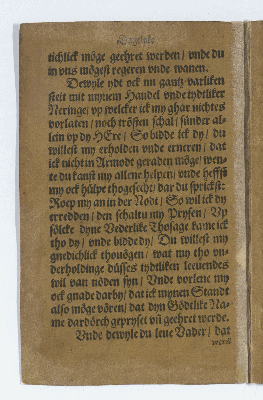 tichlick möge geehret werden/ vnde du
in vns mögest regeren vnde wanen.
Dewyle ydt ock nu gantz varliken
steit mit mynem Handel vnde tydtliker
Neringe/ vp welcker ick my ghar nichtes
vorlaten/ noch trösten schal/ sünder al-
lein vp dy HEre/ So bidde ick dy/ du
willest my erholden vnde erneren/ dat
ick nicht in Armodt geraden möge/ wen-
te du kanst my allene helpen/ vnde heffst
my ock hülpe thogesecht/ dar du sprickst:
Roep my an in der Nodt/ So wil ick dy
erredden/ den schaltu my Prysen/ Vp
sölcke dyne Vederlike Thosage kame ick
tho dy/ vnde bidde dy/ Du willest my
gnedichlick thouögen/ wat my tho vn-
derholdinge düsses tydtliken leeuendes
wil van nöden syn/ Vnde vorlene my
ock gnade darby/ dat ick mynen Standt
also möge vören/ dat dyn Gödtlike Na-
me dardörch gepryset vñ geehret werde.
Vnde dewyle du leue Vader/ dat